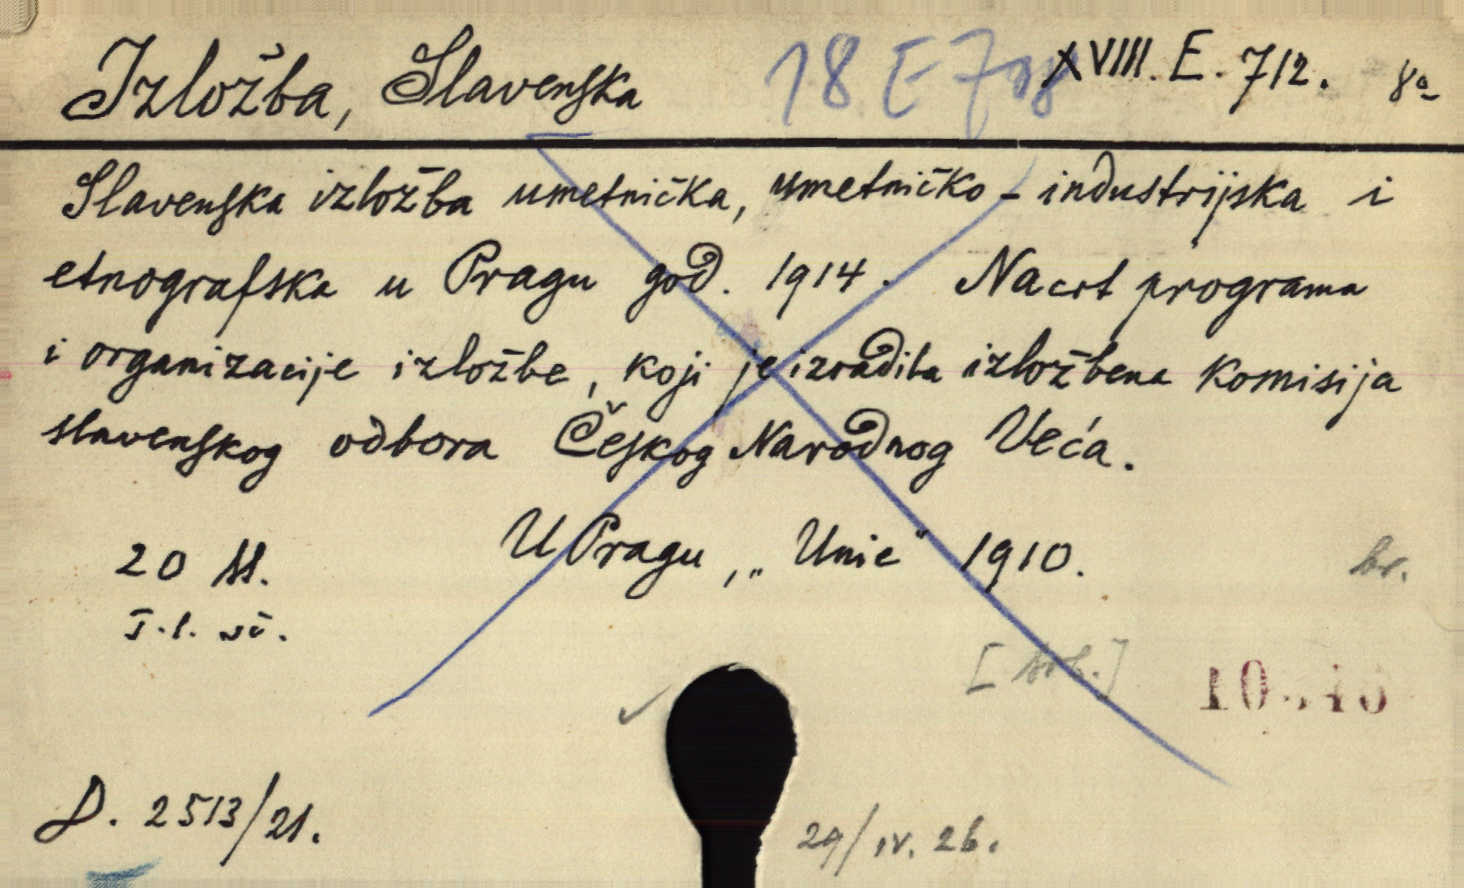 Izložba, Slavenska 18 E 7 XVIII. E. 712. 8°
Slavenska izložba umetnička, umetničko-industrijska i
etnografska u Pragu god. 1914. Nacrt programa
i organizacije izložbe, koji je izradila izložbena komisija
slavenskog odbora Českog Narodnog Veća.
U Pragu, „Unie" 1910.
20
br.
D. 2513/21.
29/IV. 26.